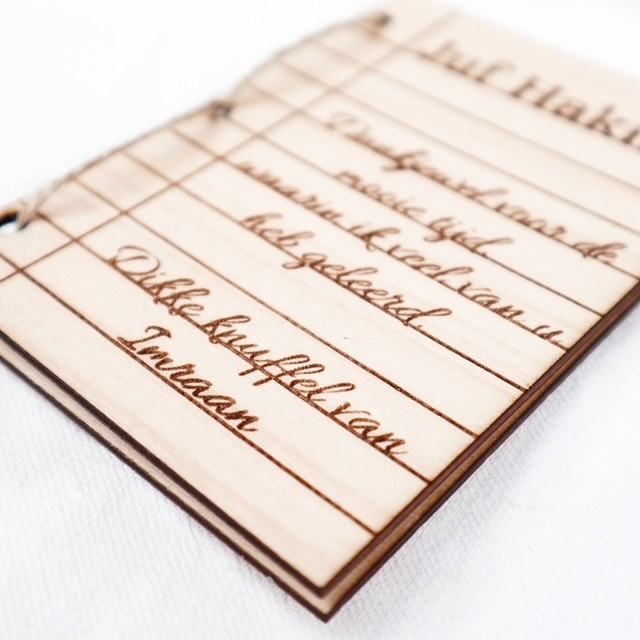 Juf Hak
Dankjewel voor de
mooie tijd
waarin ik veel van u
heb geleerd
Dikke knuffel van
Imraan